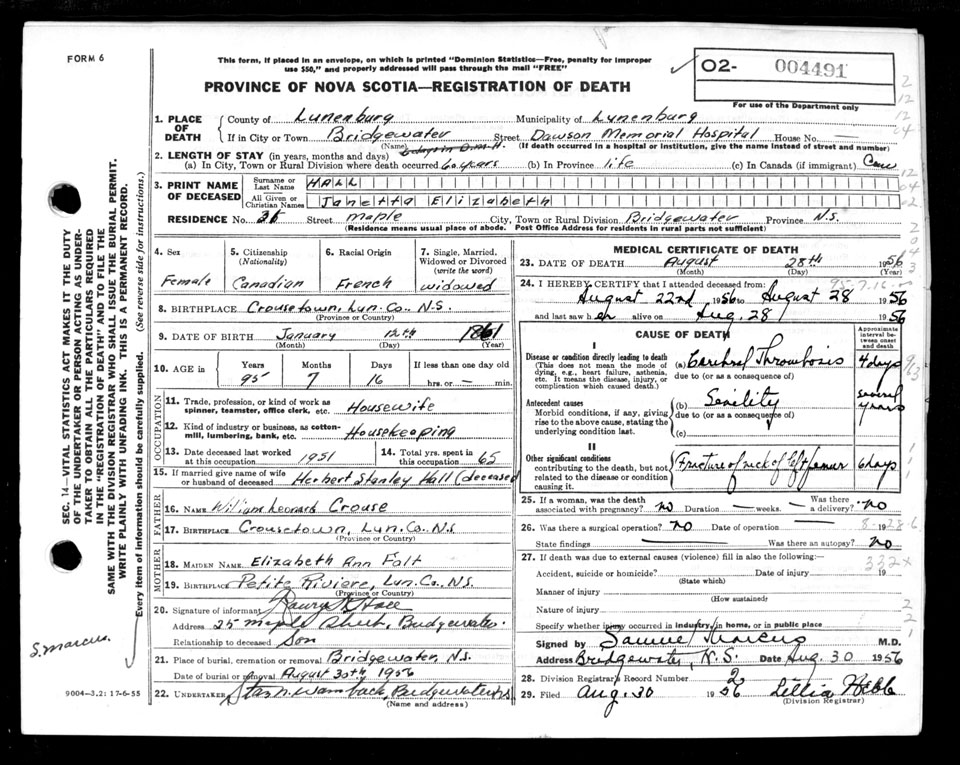 FORM 6
This form, if placed in an envelope, on which is printed "Dominion Statistics—Free, penalty for improper
use $50," and properly addressed will pass through the mail "FREE"
PROVINCE OF NOVA SCOTIA—REGISTRATION OF DEATH
O2- 004491
For use of the Department only
1. PLACE OF DEATH
County of Lunenburg Municipality of Lunenburg
If in City or Town Bridgewater Street Dawson Memorial Hospital House No. —
(Name) 6 days in D.M.H. (If death occurred in a hospital or institution, give the name instead of street and number)
2. LENGTH OF STAY (in years, months and days)
(a) In City, Town or Rural Division where death occurred 60 years (b) In Province life (c) In Canada (if immigrant) Can
3. PRINT NAME OF DECEASED
Surname or Last Name HALL
All Given or Christian Names Janetta Elizabeth
RESIDENCE No. Street maple City, Town or Rural Division Bridgewater Province N.S.
(Residence means usual place of abode. Post Office Address for residents in rural parts not sufficient)
4. Sex Female
5. Citizenship (Nationality) Canadian
6. Racial Origin French
7. Single, Married, Widowed or Divorced (write the word) widowed
8. BIRTHPLACE Crousetown, Lun. Co. N.S.
(Province or Country)
9. DATE OF BIRTH January 12th 1861
(Month) (Day) (Year)
10. AGE in Years 95 Months 7 Days 16 If less than one day old hrs. or — min.
OCCUPATION
11. Trade, profession, or kind of work as spinner, teamster, office clerk, etc. Housewife
12. Kind of industry or business, as cotton-mill, lumbering, bank, etc. Housekeeping
13. Date deceased last worked at this occupation 1951
14. Total yrs. spent in this occupation 65
15. If married give name of wife or husband of deceased Herbert Stanley Hall (deceased)
FATHER
16. NAME William Leonard Crouse
17. BIRTHPLACE Crousetown, Lun. Co. N.S.
(Province or Country)
MOTHER
18. MAIDEN NAME Elizabeth Ann Falt
19. BIRTHPLACE Petite Riviere, Lun. Co. N.S.
(Province or Country)
20. Signature of informant Hall
Address 25 maple Street, Bridgewater
Relationship to deceased Son
21. Place of burial, cremation or removal Bridgewater, N.S.
Date of burial or removal August 30th 1956
22. UNDERTAKER Bridgewater N.S.
(Name and address)
MEDICAL CERTIFICATE OF DEATH
23. DATE OF DEATH August 28th 1956
(Month) (Day) (Year)
24. I HEREBY CERTIFY that I attended deceased from:
95-7-16
August 22nd 1956 to August 28 1956
and last saw her alive on Aug. 28 1956
CAUSE OF DEATH
Approximate interval between onset and death
I
Disease or condition directly leading to death
(This does not mean the mode of dying, e.g., heart failure, asthenia, etc. It means the disease, injury, or complication which caused death.)
(a) Cerebral Thrombosis 4 days
due to (or as a consequence of)
Antecedent causes
Morbid conditions, if any, giving rise to the above cause, stating the underlying condition last.
(b) Senility several years
due to (or as a consequence of)
(c)
II
Other significant conditions
contributing to the death, but not related to the disease or condition causing it.
Fracture of neck of left femur 6 days
25. If a woman, was the death associated with pregnancy? no Duration — weeks. Was there a delivery? no
26. Was there a surgical operation? no Date of operation —
State findings — Was there an autopsy? no
27. If death was due to external causes (violence) fill in also the following:—
332x
Accident, suicide or homicide? Date of injury 19
(State which)
Manner of injury
(How sustained)
Nature of injury
Specify whether injury occurred in industry, in home, or in public place
Signed by Samuel Marcus M.D.
Address Bridgewater, N.S. Date Aug. 30 1956
28. Division Registrar's Record Number 2
29. Filed Aug. 30 1956 Lellia Hebb
(Division Registrar)
SEC. 14—VITAL STATISTICS ACT MAKES IT THE DUTY
OF THE UNDERTAKER OR PERSON ACTING AS UNDER-
TAKER TO OBTAIN ALL THE PARTICULARS REQUIRED
IN THE "REGISTRATION OF DEATH" AND TO FILE THE
SAME WITH THE DIVISION REGISTRAR WHO SHALL ISSUE THE BURIAL PERMIT.
WRITE PLAINLY WITH UNFADING INK. THIS IS A PERMANENT RECORD.
Every item of information should be carefully supplied. (See reverse side for instructions.)
S. Marcus.
9004—3.2: 17-6-55